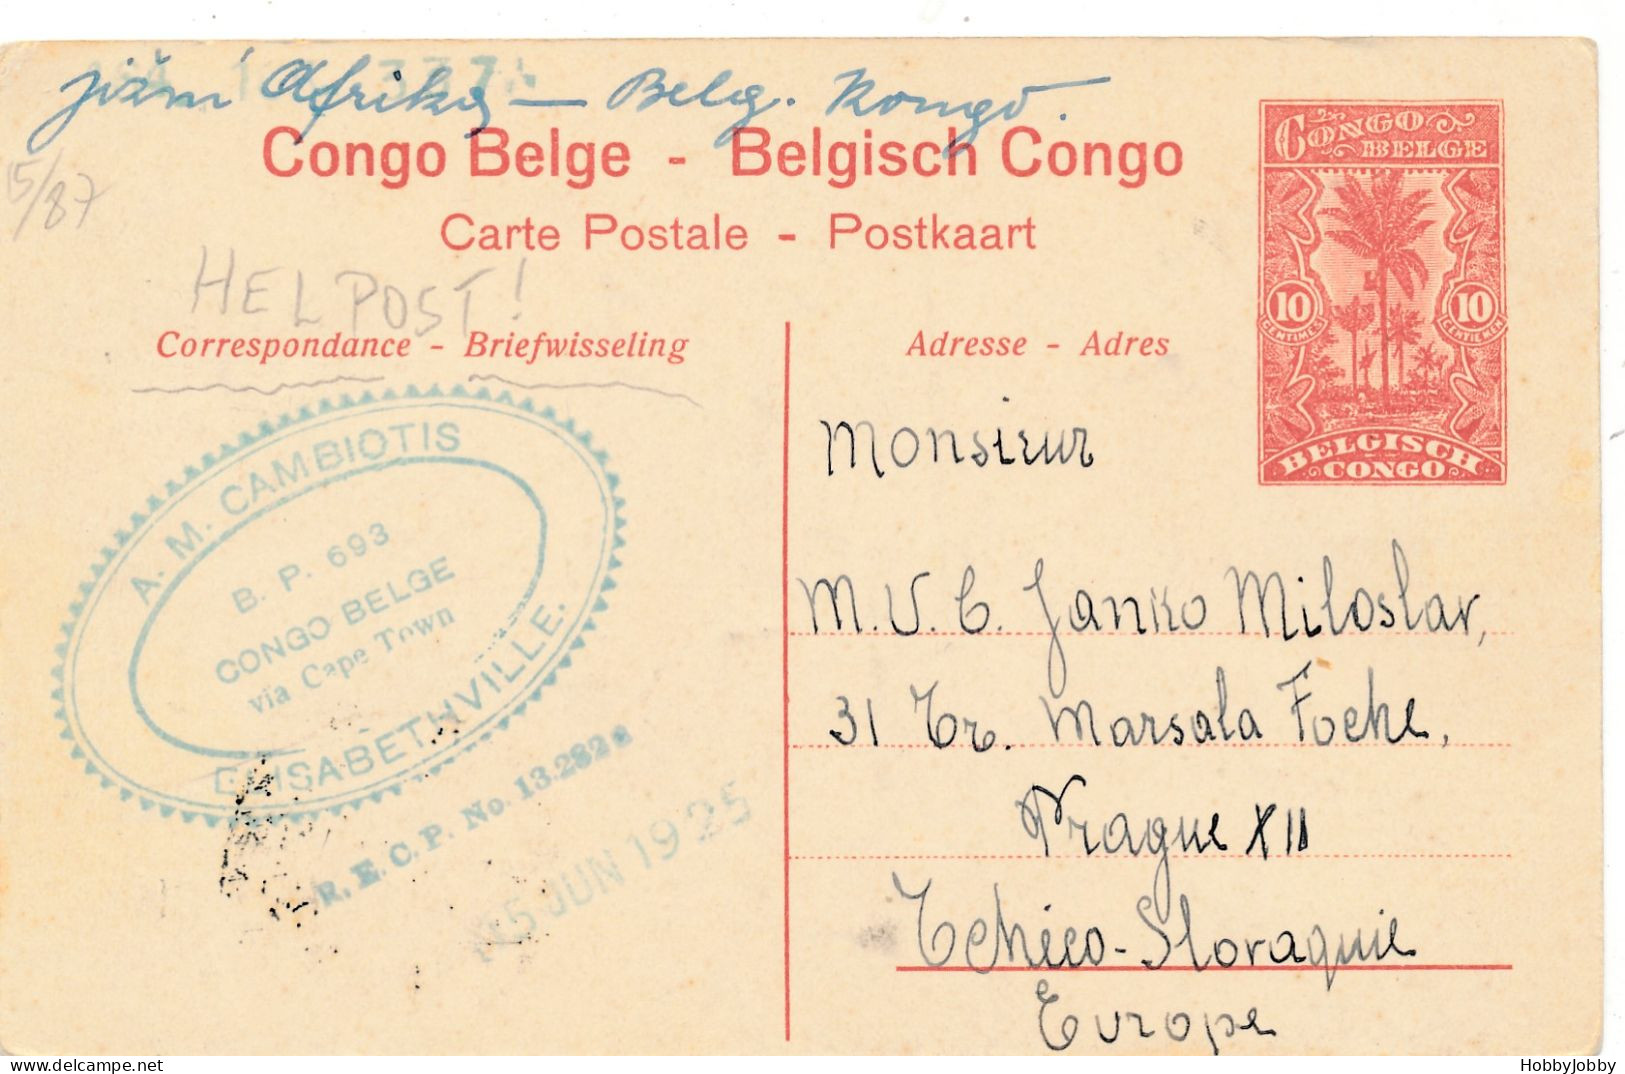 jižní Afrika — Belg. Kongo.
Congo Belge - Belgisch Congo
Carte Postale - Postkaart
5/87
HELPOST!
Correspondance - Briefwisseling
Adresse - Adres
CONGO
BELGE
10
CENTIMES
10
CENTIEMEN
BELGISCH
CONGO
A. M. CAMBIOTIS
B. P. 693
CONGO BELGE
via Cape Town
ELISABETHVILLE.
R. E. C. P. No. 13.282
15 JUN 1925
Monsieur
M. U. C. Janko Miloslav,
31 Tr. Marsala Foche,
Prague XII
Tchéco-Slovaquie
Europe
HobbyJobby